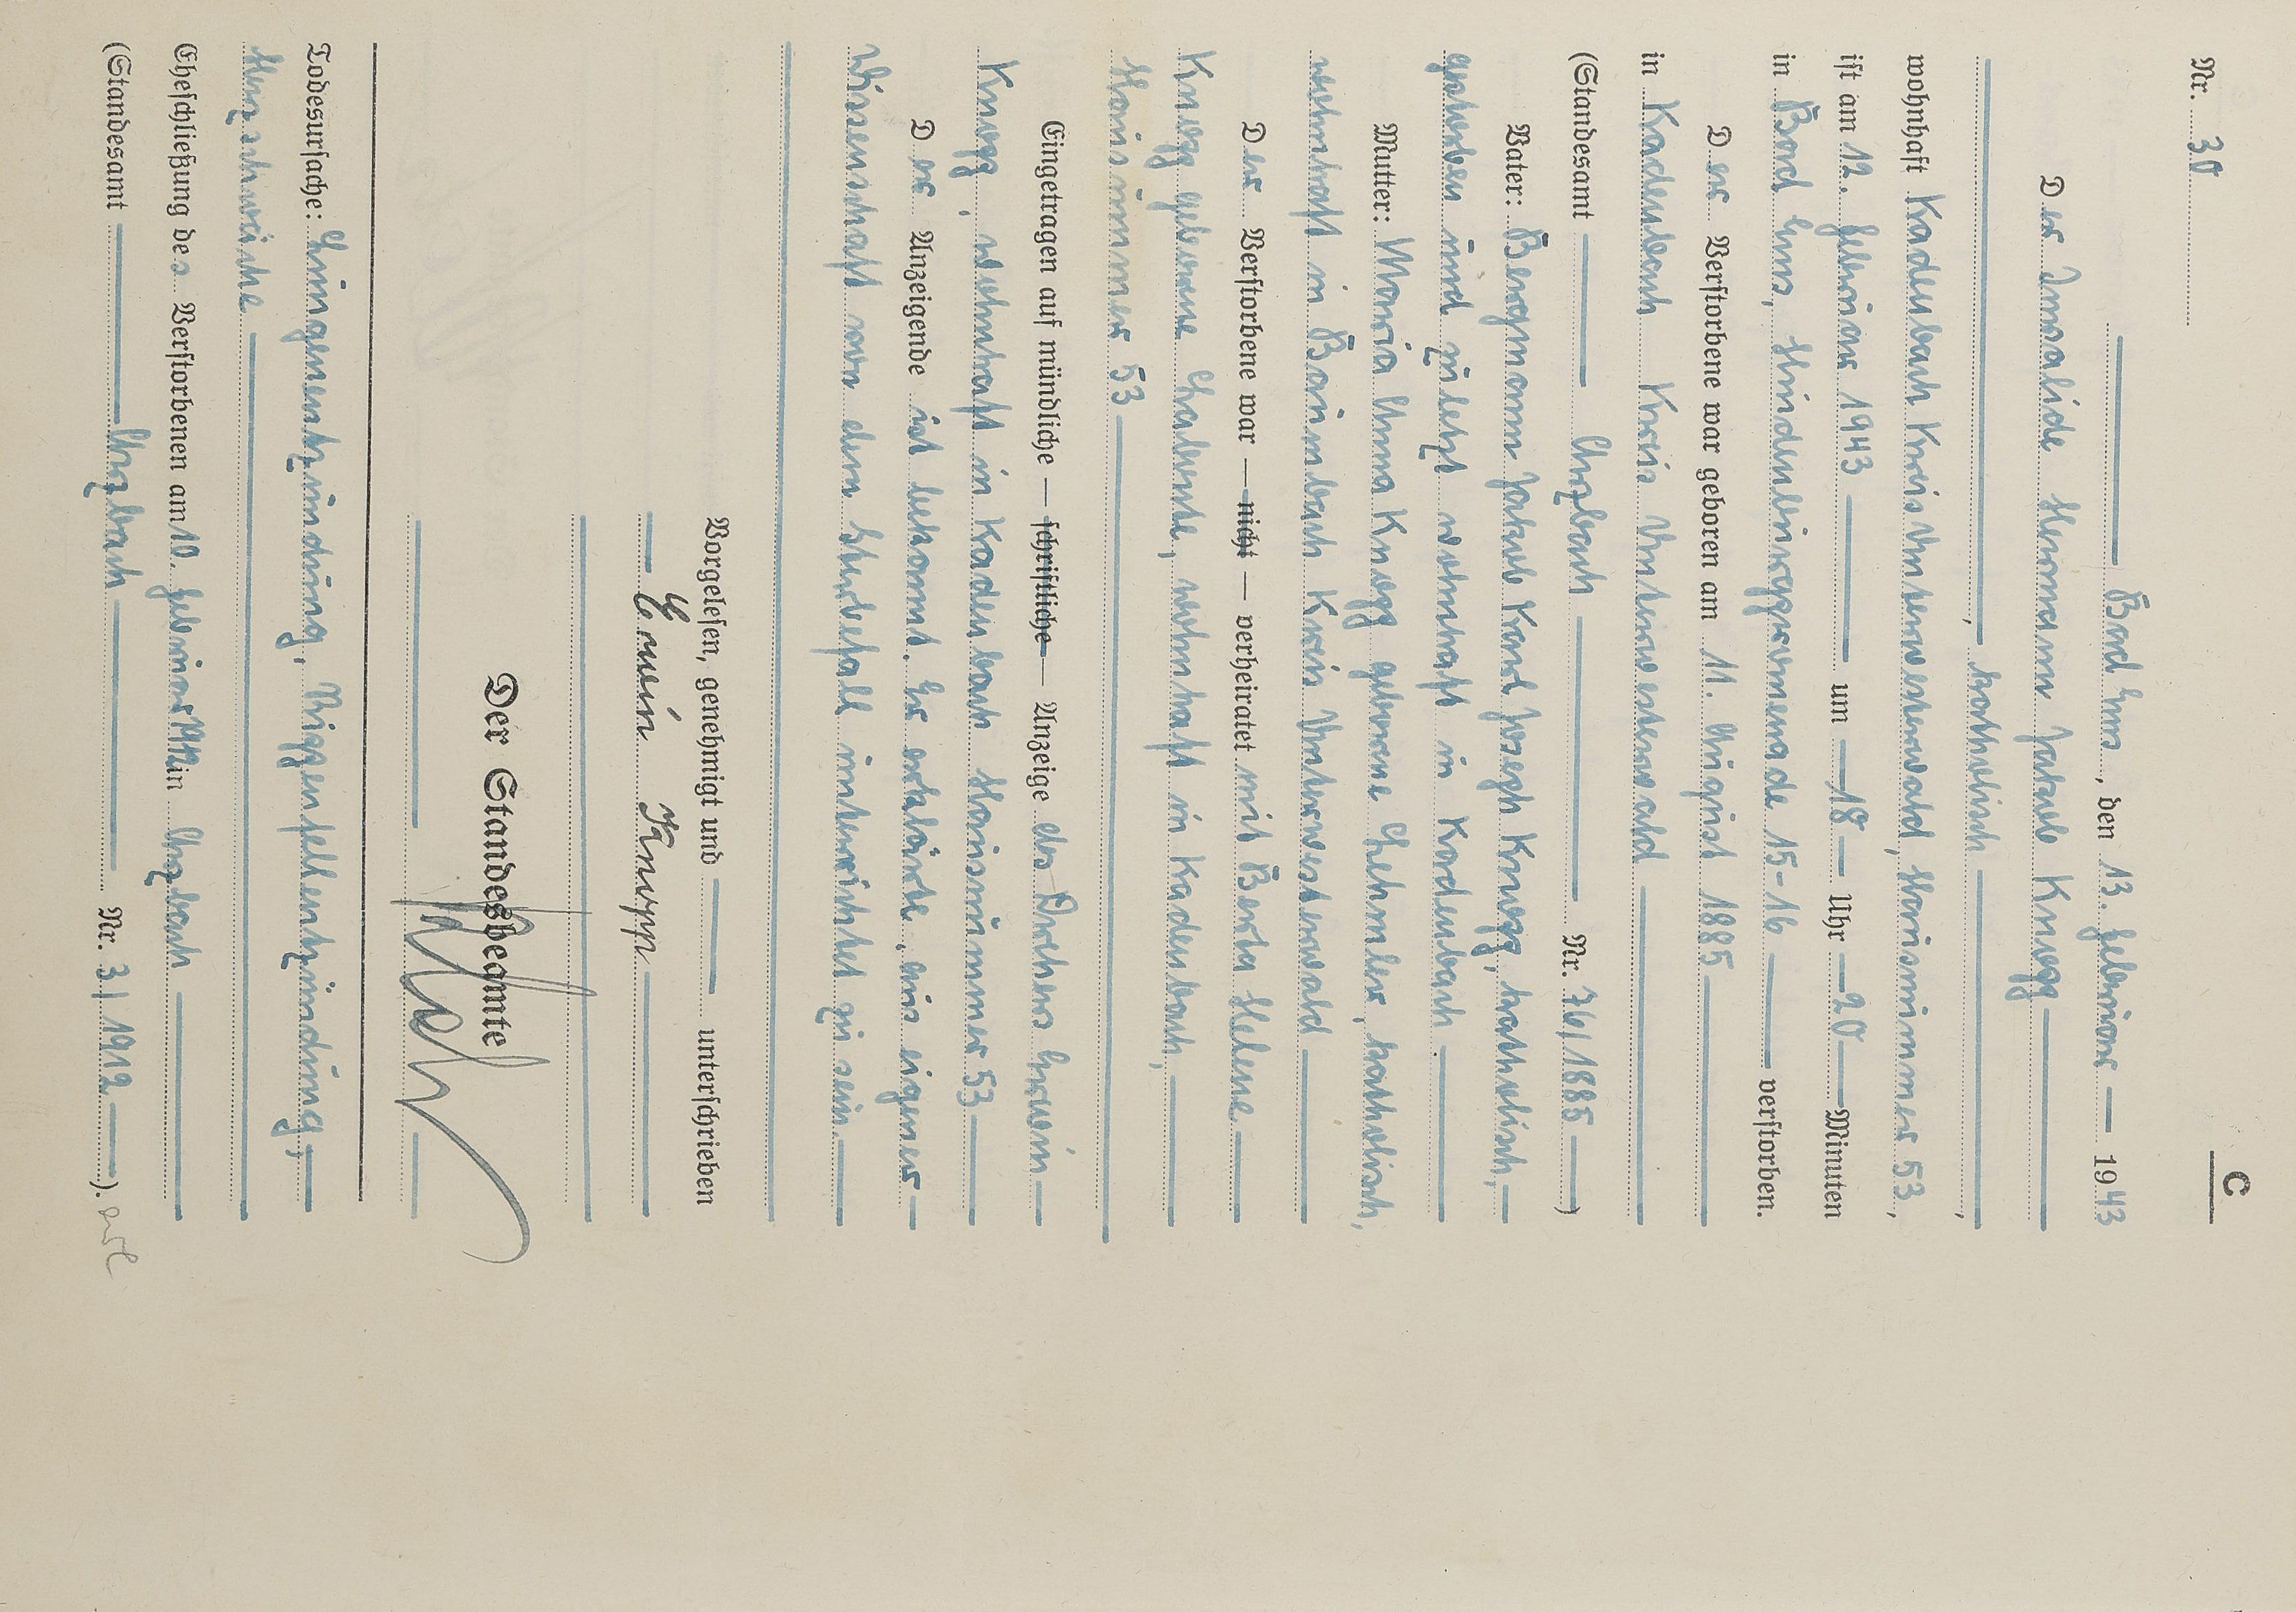 C
Nr. 30
Bad Ems, den 13. Februar 1943
Der Invalide Hermann Jakob Knopp
, katholisch ,
wohnhaft Kadenbach Kreis Unterwesterwald, Hausnummer 53,
ist am 12. Februar 1943 um 18 Uhr 20 Minuten
in Bad Ems, Hindenburgpromenade 15-16 verstorben.
Der Verstorbene war geboren am 11. August 1885
in Kadenbach Kreis Unterwesterwald
(Standesamt Arzbach Nr. 76/1885)
Vater: Bergmann Jakob Karl Joseph Knopp, katholisch,
gestorben und zuletzt wohnhaft in Kadenbach.
Mutter: Maria Anna Knopp geborene Ehemler, katholisch,
wohnhaft in Baumbach Kreis Unterwesterwald
Der Verstorbene war — nicht — verheiratet mit Berta Helene
Knopp geborene, wohnhaft in Kadenbach,
Hausnummer 53
Eingetragen auf mündliche — schriftliche — Anzeige des Drehers Erwin
Knopp, wohnhaft in Kadenbach Hausnummer 53
Der Anzeigende ist bekannt. Er erklärte, aus eigener
Wissenschaft von dem Sterbefall unterrichtet zu sein.
Vorgelesen, genehmigt und unterschrieben
Erwin Knopp
Der Standesbeamte
Todesursache: Lungenentzündung, Rippenfellentzündung,
Herzschwäche
Eheschließung des Verstorbenen am 10. Februar 1912 in Arzbach
(Standesamt Arzbach Nr. 3/1912).